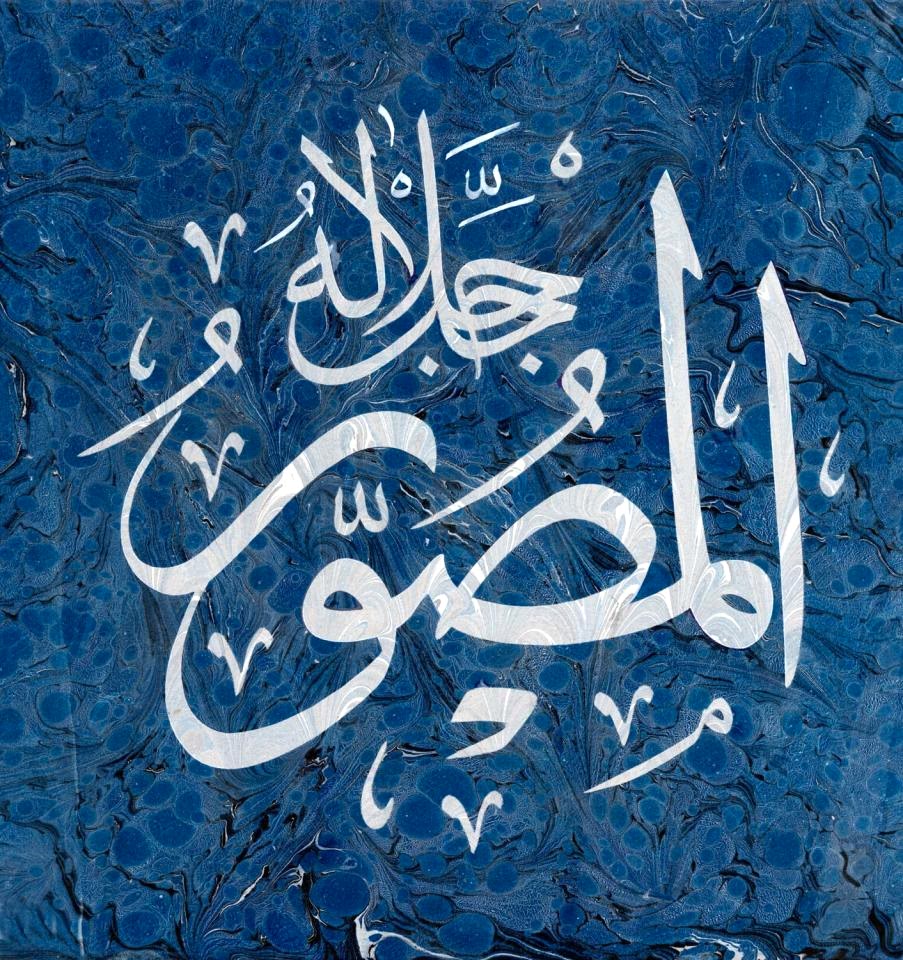 المُصَوِّرُ
جَلَّ جَلَالُهُ